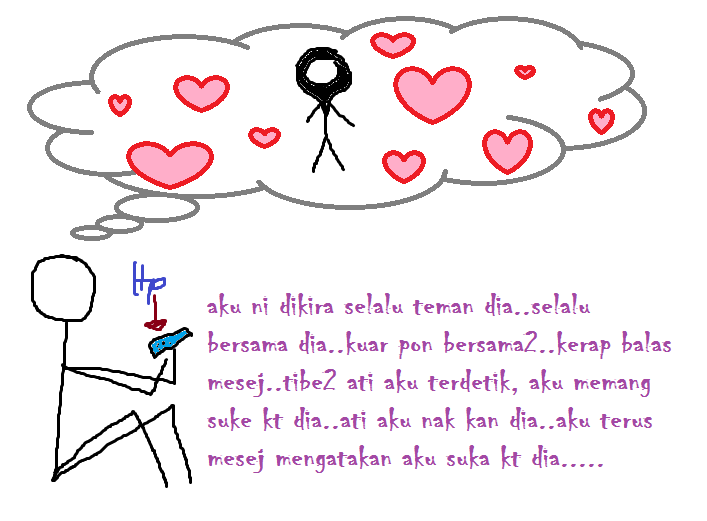 Hp
aku ni dikira selalu teman dia..selalu
bersama dia..kuar pon bersama2..kerap balas
mesej..tibe2 ati aku terdetik, aku memang
suke kt dia..ati aku nak kan dia..aku terus
mesej mengatakan aku suka kt dia.....